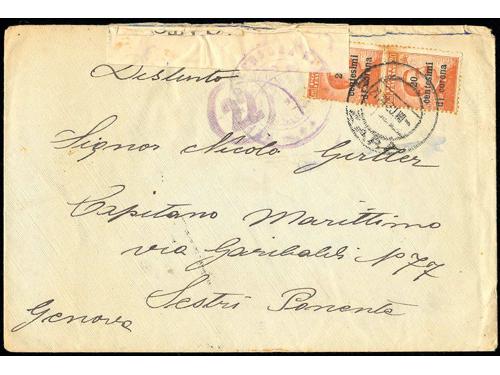 20
centesimi
di corona
20
centesimi
di corona
Distinto
Signor Nicolo Gertler
Capitano Marittimo
via Garibaldi N° 77
Sestri Ponente
Genova